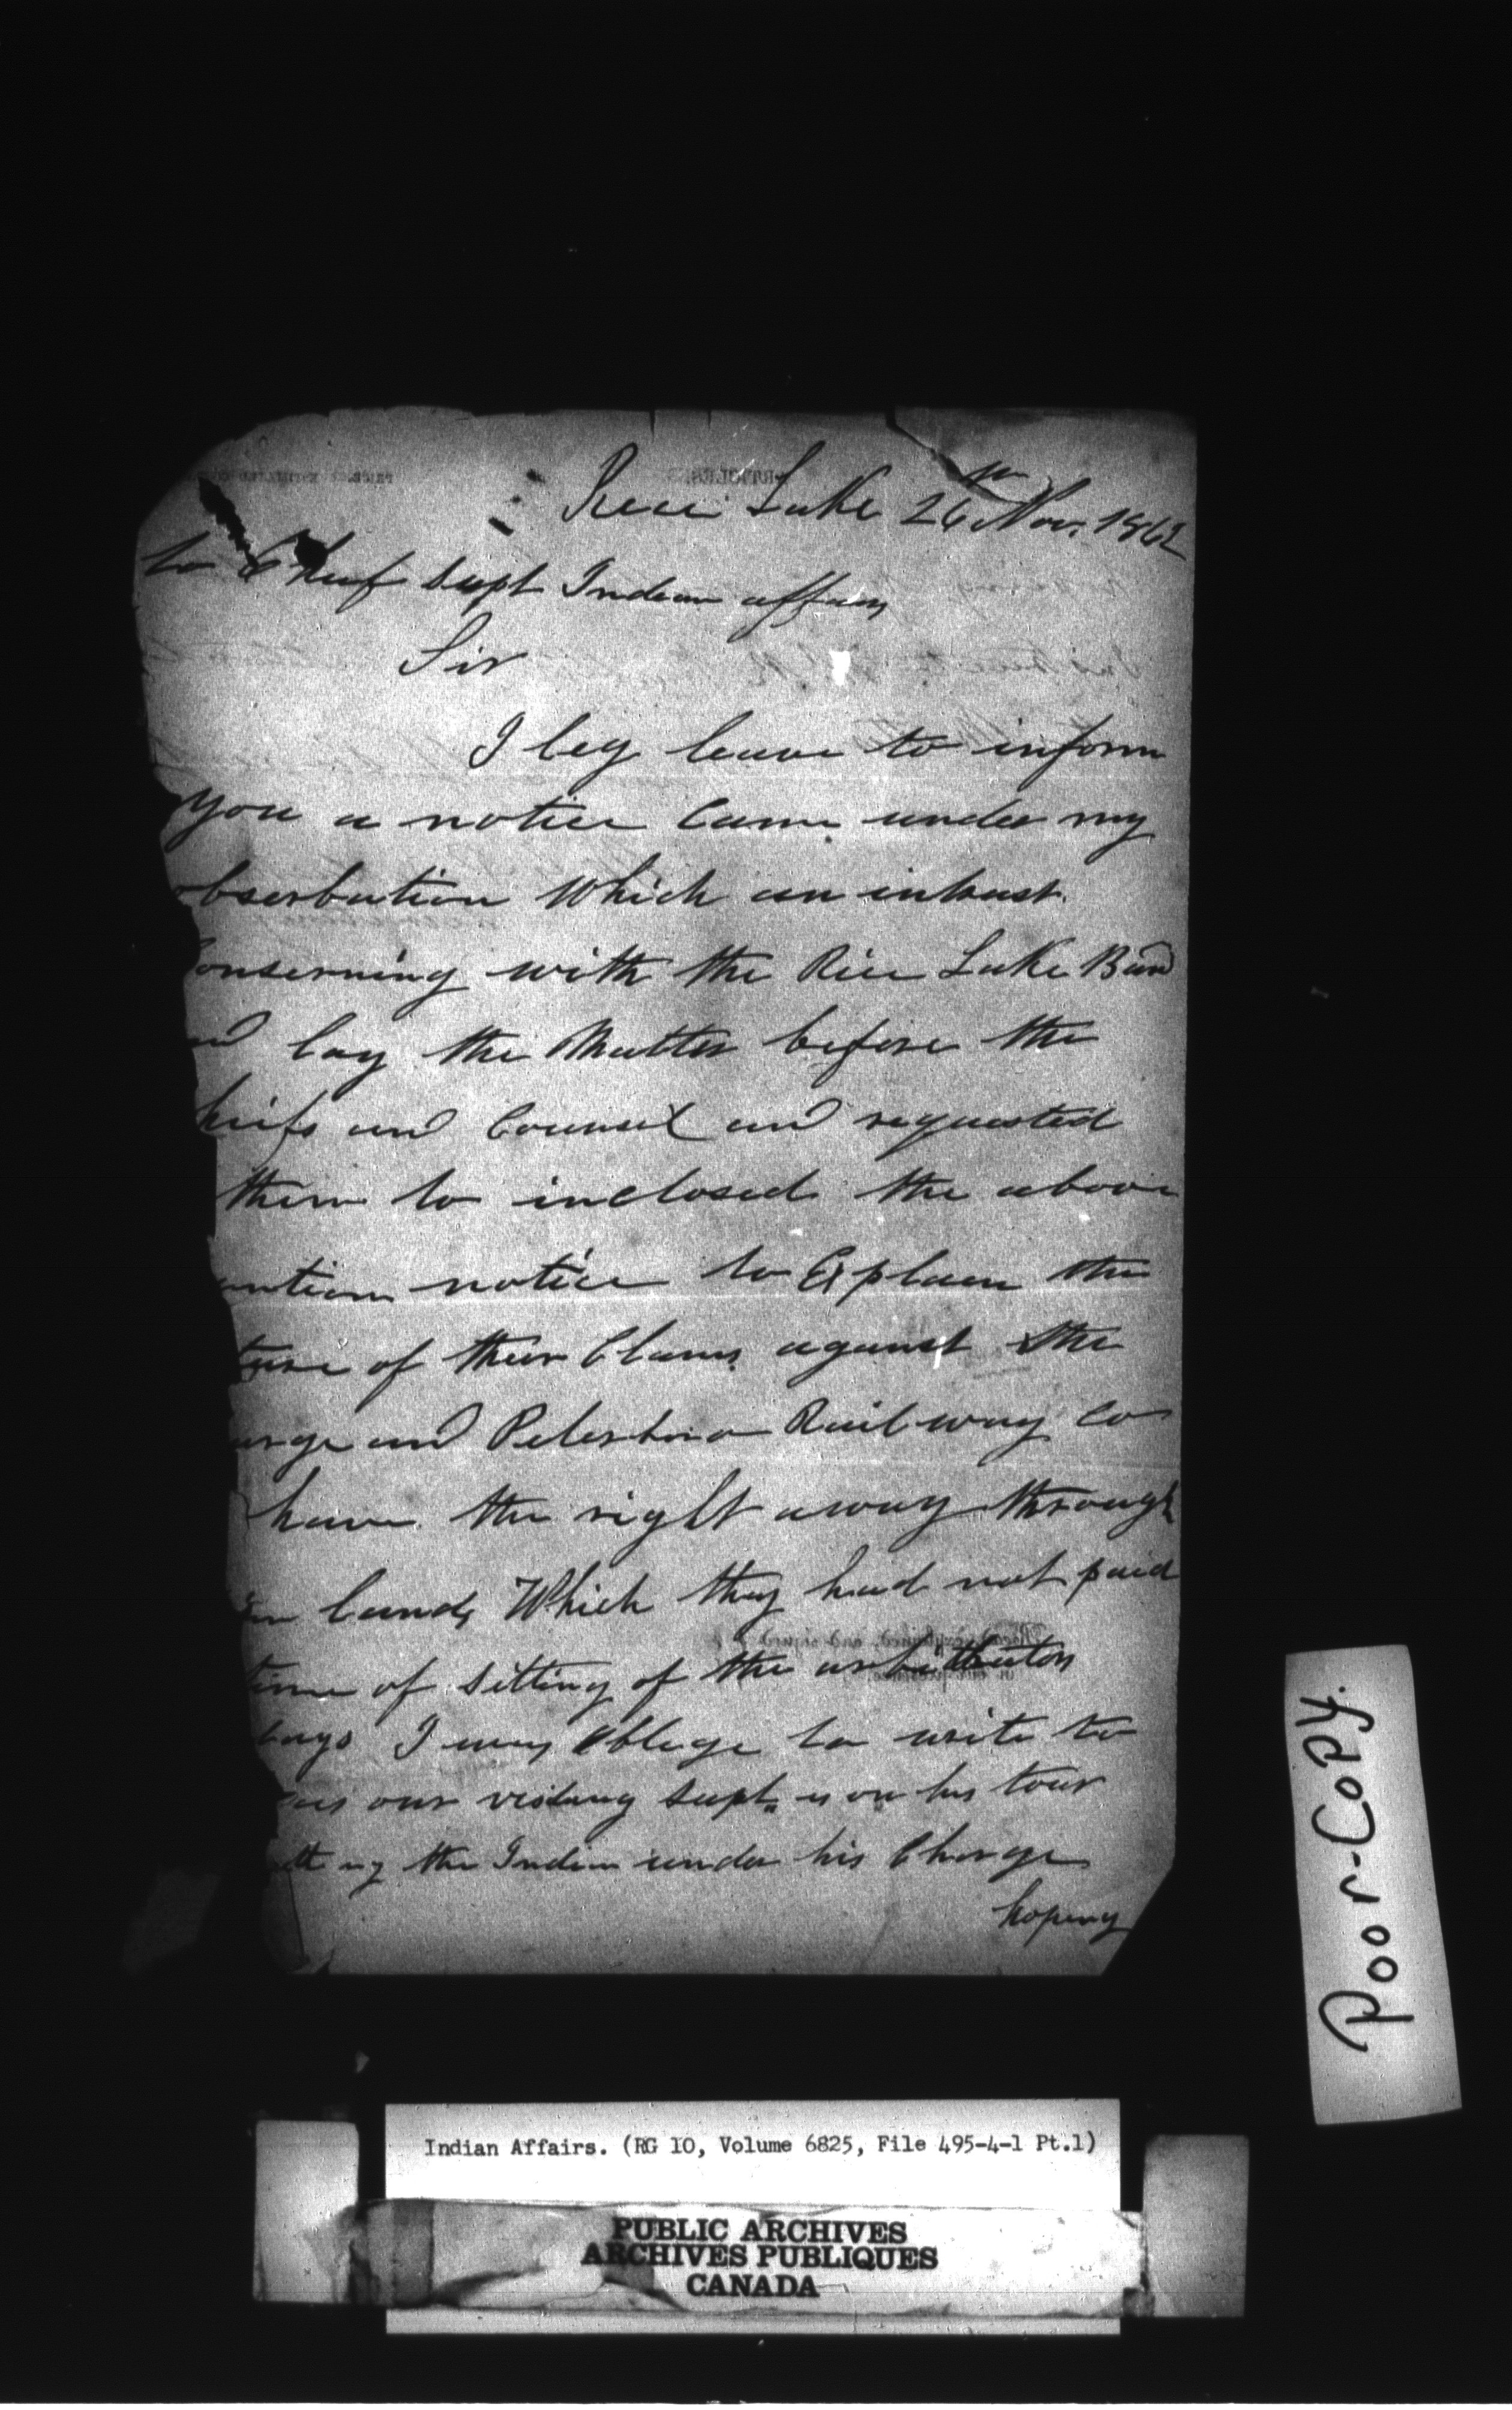 Rice Lake 26th Nov. 1862
to Chief Supt Indian affairs
Sir
I beg leave to inform
you a notice Came under my
obserbation Which an intrust
Conserning with the Rice Lake Band
and lay the Matter before the
hiefs and Counsel and requested
them to inclosed the above
ention notice to Explain the
ture of their Claims against the
urge and Peterboro Railway Co
have the right away through
lands Which they had not paid
time of sitting of the
I was Oblige to write to
as our visiting Supt. is on his tour
the Indian under his Charge
hopeing
Poor-Copy.
Indian Affairs. (RG 10, Volume 6825, File 495-4-1 Pt.1)
PUBLIC ARCHIVES
ARCHIVES PUBLIQUES
CANADA